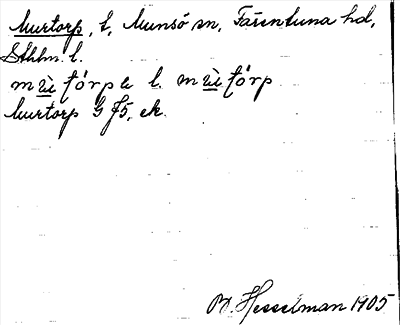 Murtorp, t, Munsö sn, Färentuna hd,
Sthlm l.
mùtórp l. mùtórp
Murtorp G J5, ek.
B. Hesselman 1905